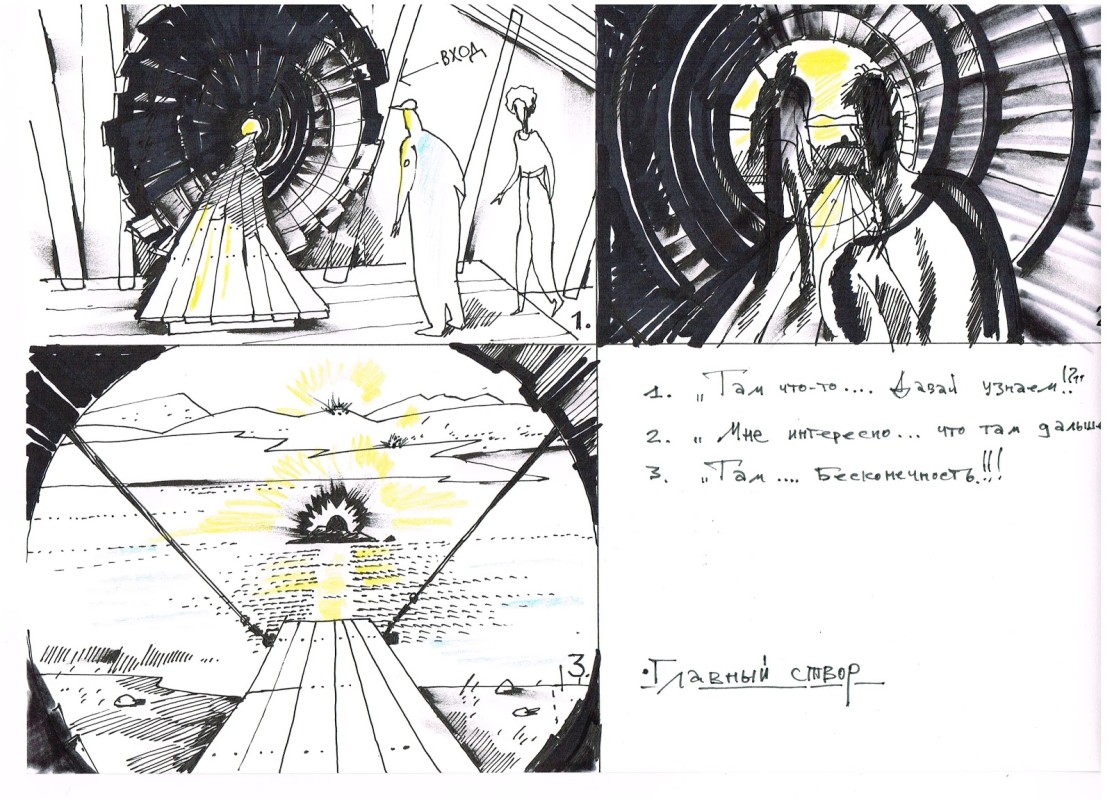 ВХОД
1.
2
3.
1. „Там что-то.... Давай узнаем!?"
2. „Мне интересно... что там дальше
3. „Там .... Бесконечность!!!
·Главный створ